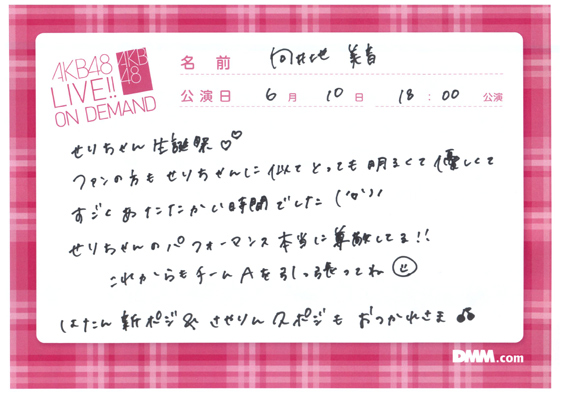 AKB48
LIVE!!
ON DEMAND
AKB
48
名前 向井地 美音
公演日 6月 10日 18:00 公演
せりちゃん 生誕祭♡♡
ファンの方も せりちゃんに 似て とっても 明るくて 優しくて
すごく あたたかい 時間でした
せりちゃんの パフォーマンス 本当に 尊敬してる!!
これからも チームAを 引っ張ってね
はたん 新ポジ& さやりん 久ポジも おつかれさま
DMM.com